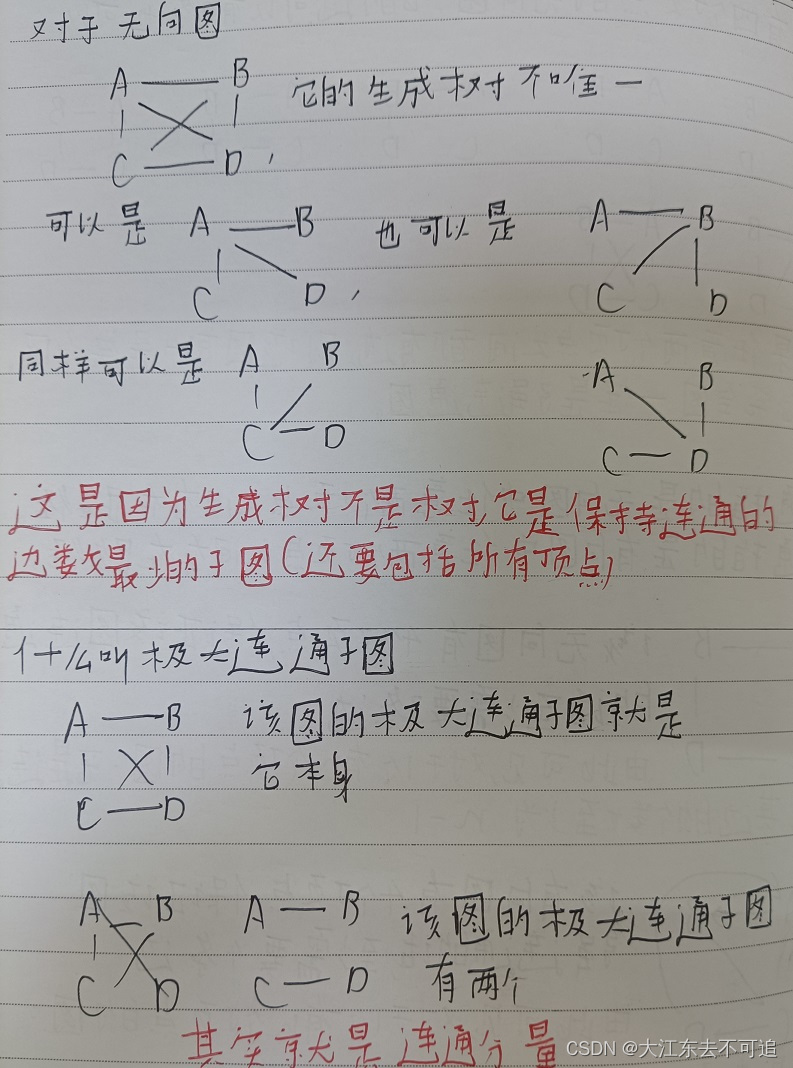 对于无向图
A B 它的生成树不唯一
C D，
可以是 A B 也可以是 A B
C D， C D
同样可以是 A B A B
C D C D
这是因为生成树不是树,它是保持连通的
边数最少的子图(还要包括所有顶点)
什么叫极大连通子图
A B 该图的极大连通子图就是
它本身
C D
A B A B 该图的极大连通子图
C D C D 有两个
其实就是连通分量
CSDN @大江东去不可追